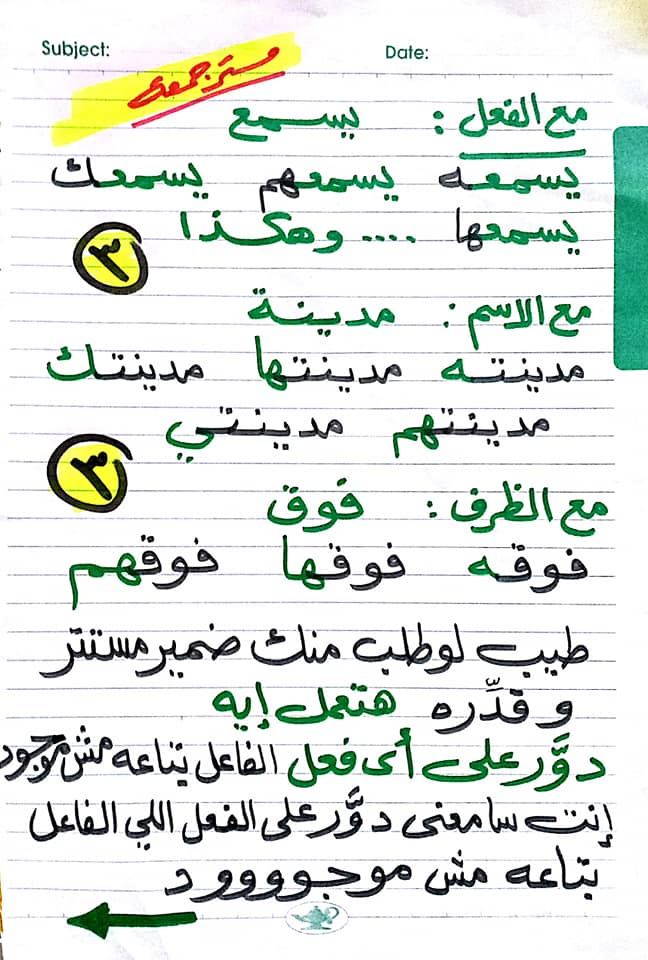 Subject: Date:
مستر جمعه
مع الفعل : يسمع
يسمعه يسمعهم يسمعك
يسمعها .... وهكذا
٣
مع الاسم : مدينة
مدينته مدينتها مدينتك
مدينتهم مدينتي
٣
مع الظرف : فوق
فوقه فوقها فوقهم
طيب لو طلب منك ضمير مستتر
و قدِّره هتعمل إيه
دوَّر على أى فعل الفاعل بتاعه مش موجود
إنت سامعنى دوَّر على الفعل اللي الفاعل
بتاعه مش موجوووود